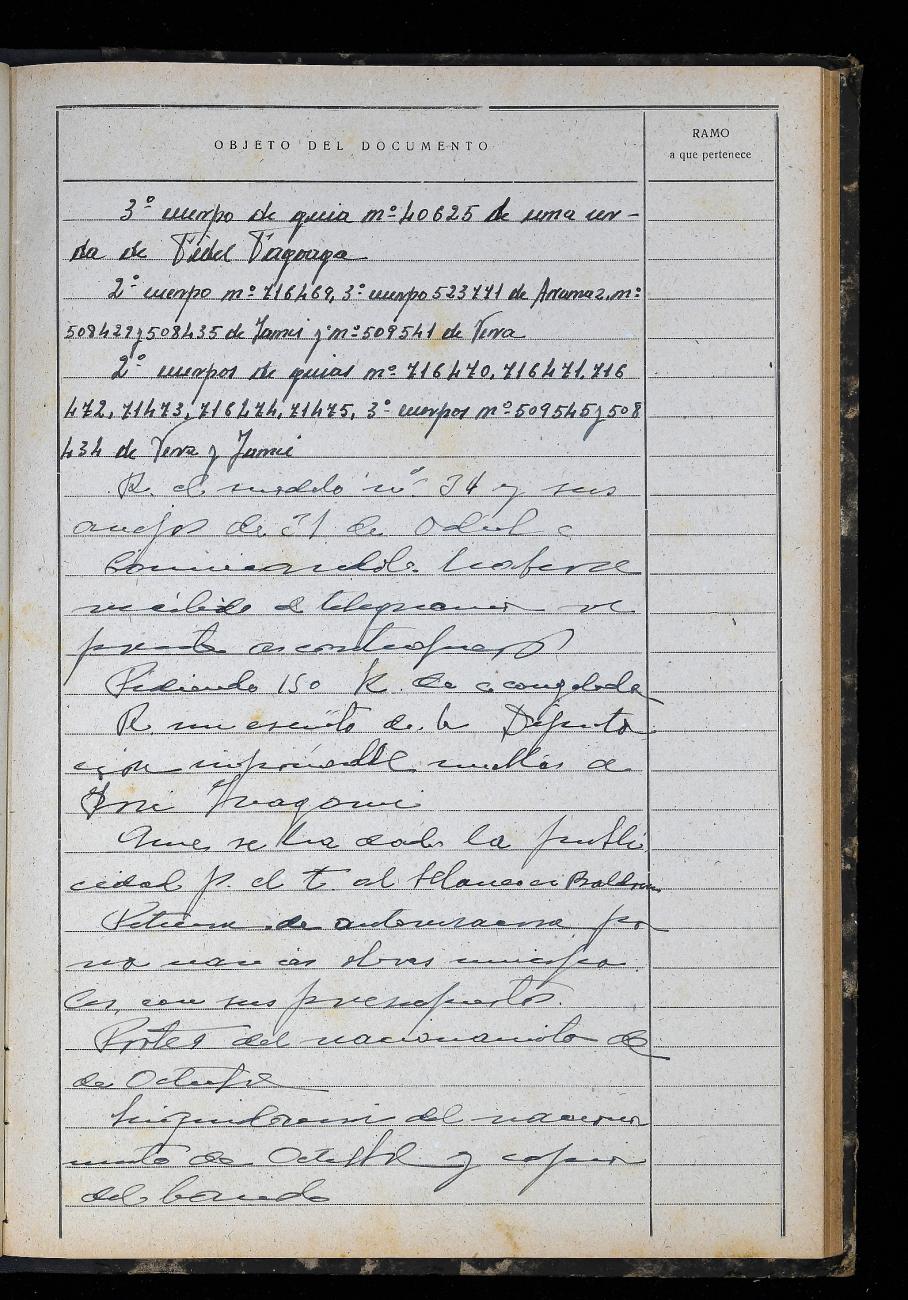 OBJETO DEL DOCUMENTO
RAMO
a que pertenece
3º cuerpo de guia nº 40625 de una cer-
da de Fidel Tagoaga
2º cuerpo nº 716469, 3º cuerpo 523771 de Arranaz, nº
508429 y 508435 de Yanci y nº 509541 de Vera
2º cuerpos de guias nº 716470, 716471, 716
472, 71473, 716474, 71475, 3º cuerpos nº 509545 y 508
434 de Vera y Yanci
R. el modelo nº 34 y sus
anejos de 31 de
Comunicandole haberse
recibido el telegrama re
Pidiendo 150 K. de c congelada
R un escrito de la Diputa
ción imponiendole multas a
Que se ha dado la publi
cidad p. el t al
Peticion de autorizacion pa
ra varias obras municipa
les, con sus presupuestos.
Portes del racionamiento de
de Octubre
del raciona
miento de Octubre y copia
del bando